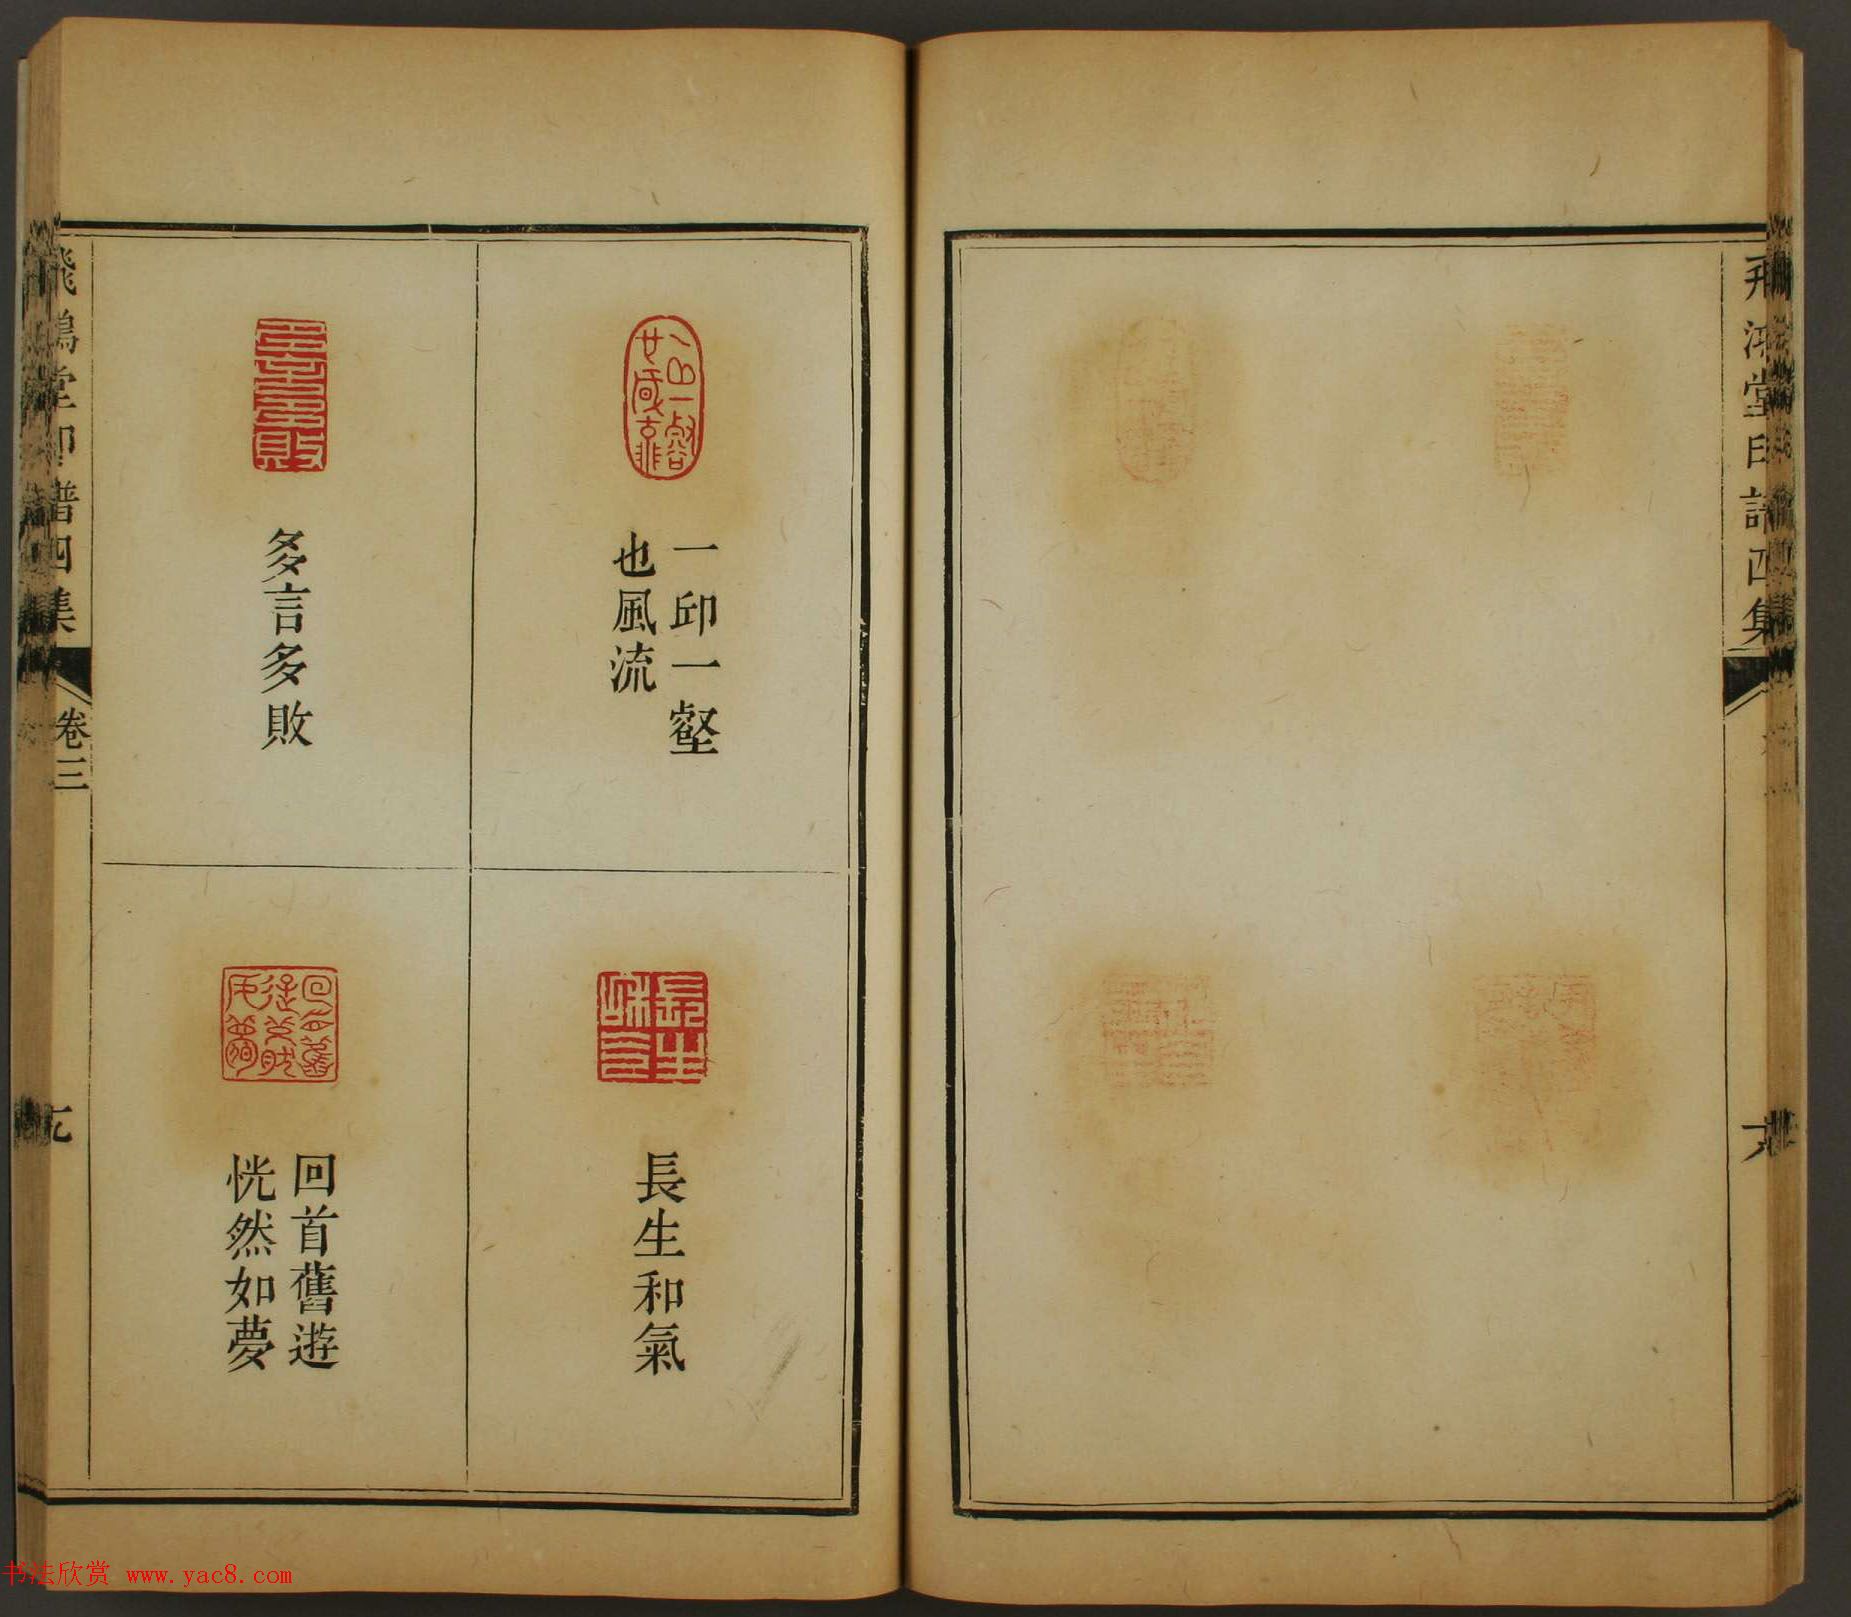 飛鴻堂印譜四集
一邱一壑
也風流
長生和氣
多言多敗
回首舊遊
恍然如夢
飛鴻堂印譜四集
卷三
书法欣赏 www.yac8.com